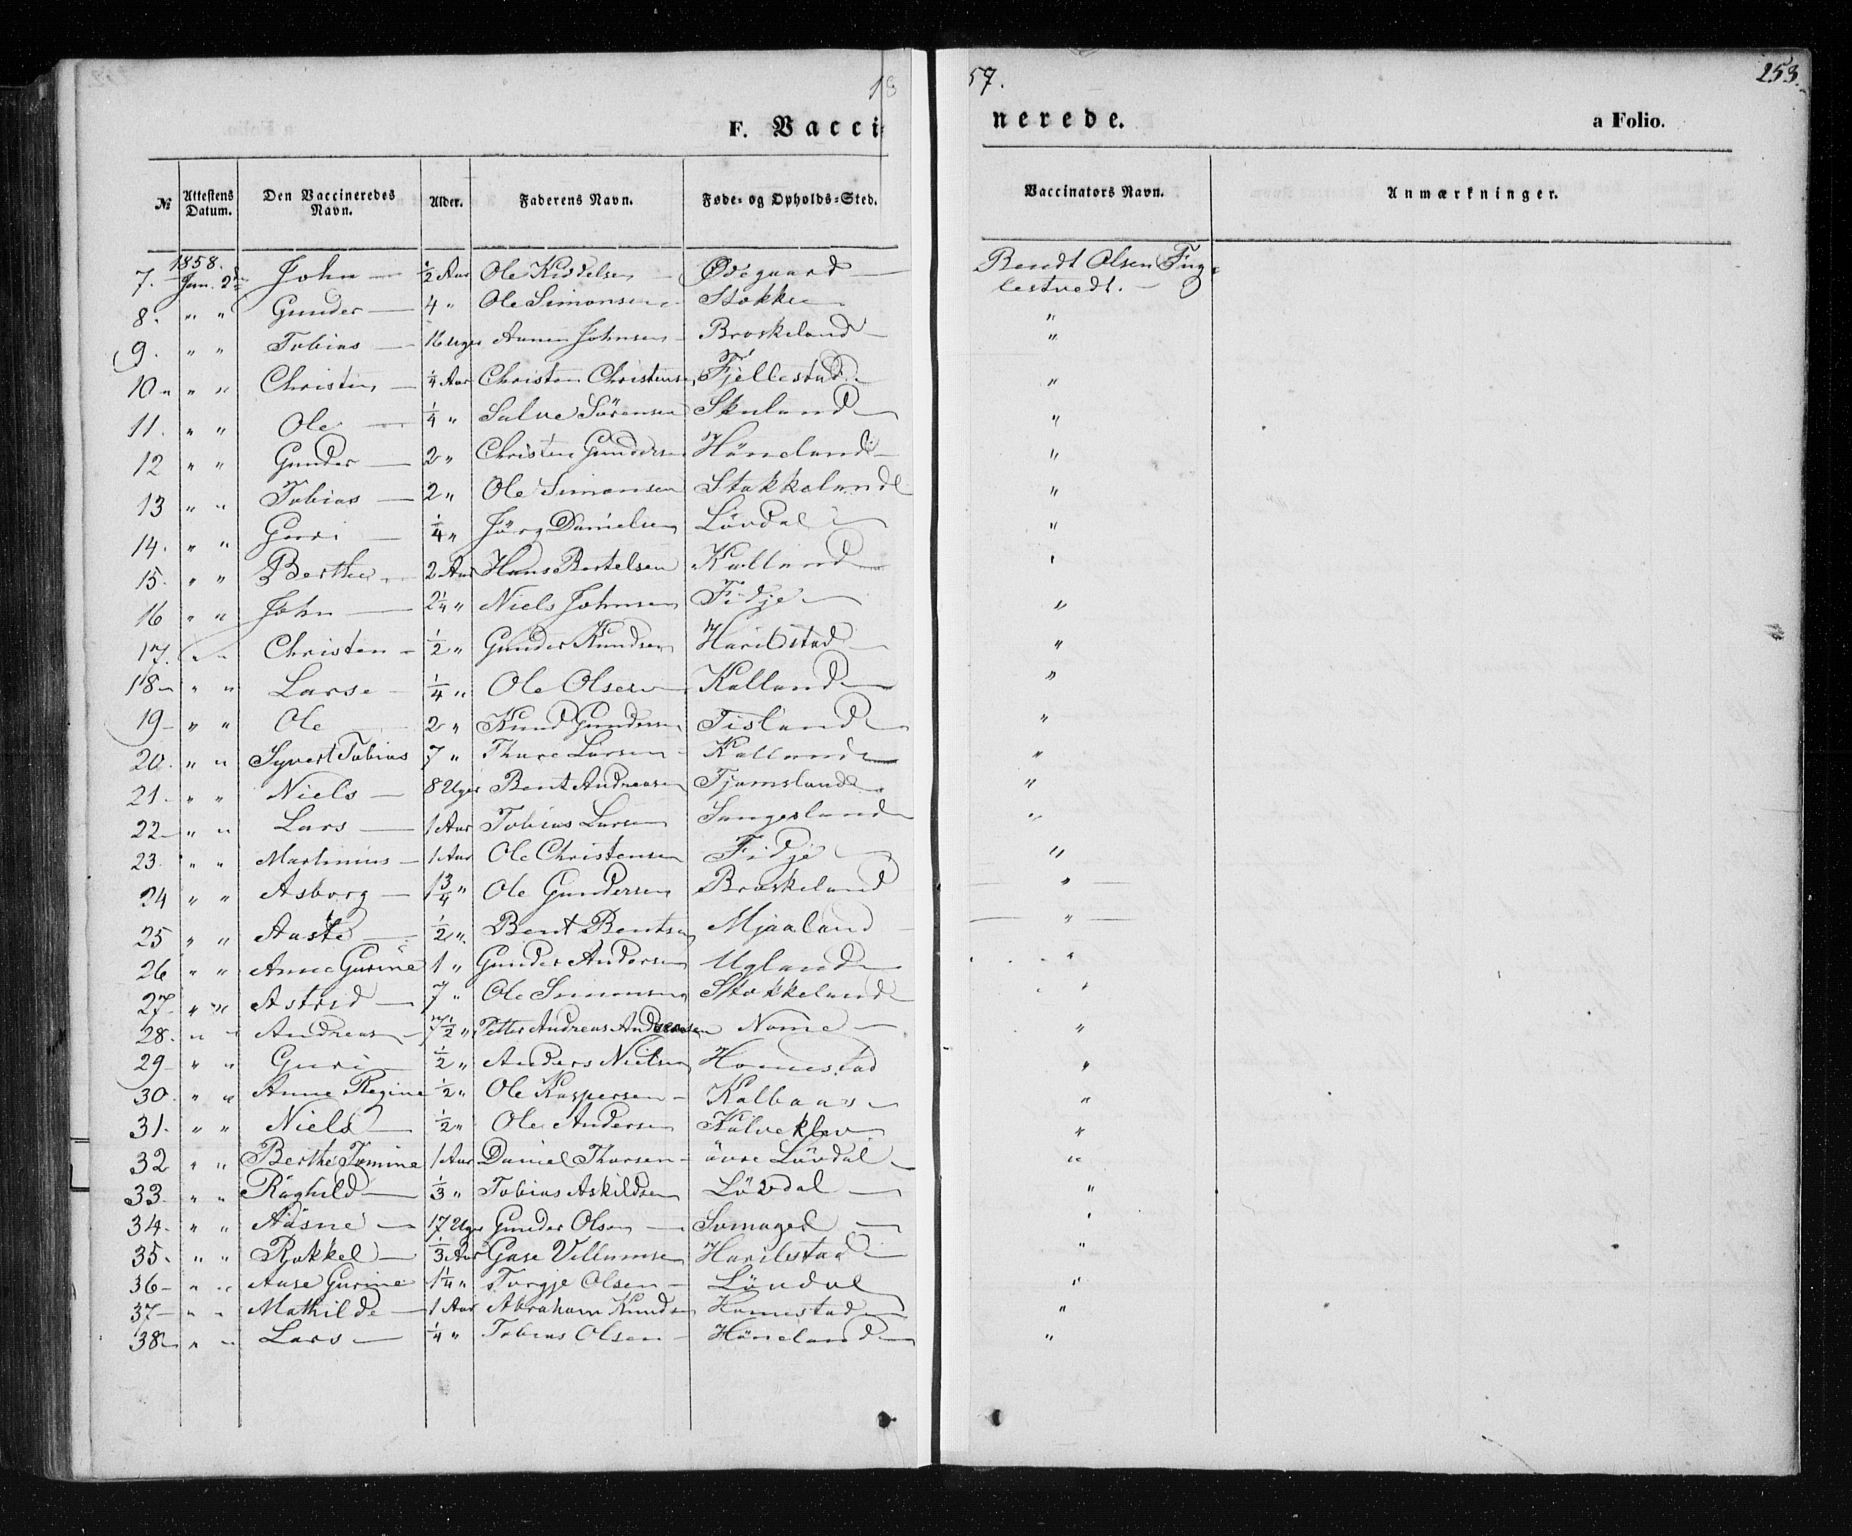 18 57. 253.
F. Vaccinerede. a Folio.
№ Attestens Datum. Den Vaccineredes Navn. Alder. Faderens Navn. Føde- og Opholds-Sted. Vaccinators Navn. Anmærkninger.
1858.
7. Jan. 2d John — 1/2 Aar Ole — Ødegaard — Bendt Olsen Fug-
lestvedt. —
8. " " Gunder — 4 " Ole Simonsen Stokke "
9. " " Tobias — 16 Uger Johnsen Broskeland "
10 " " Christen — 1/4 Aar Christen Christensen Fjellestad "
11. " " Ole — 1/4 " Salve Sørensen Skuland "
12 " " Gunder — 2 " Christen Gundersen Höneland "
13 " " Tobias — 2 " Ole Simonsen Stokkeland "
14. " " Guri — 1/4 " Jörg Danielsen Lövdal "
15. " " Berthe 2 Aar Hans Bertelsen Kalland "
16 " " John — 2 1/4 " Niels Johnsen Fidje "
17. " " Christen 1/2 " Gunder Knudsen Harilstad "
18 " " Larse 1/4 " Ole Olsen Kalland "
19 " " Ole — 2 " Knud Gundersen Tisland "
20. " " Syvert Tobias 7 " Thore Larsen Kalland "
21. " " Niels — 8 Uger Bent Andreasen Tjomsland "
22 " " Lars — 1 Aar Tobias Larsen Sangesland "
23. " " Martinius 1 Aar Ole Christensen Fidje "
24 " " Asborg — 1 3/4 " Ole Gundersen Broskeland "
25 " " Aaste — 1/2 " Bent Bentsen Mjaaland "
26 " " Anne Gurine 1 " Gunder Andersen Ugland "
27 " " Astrid — 7 " Ole Simonsen Stokkeland "
28. " " Andreas 7 1/2 " Petter Andreas Andreasen Nome — "
29 " " Guri 1/2 " Anders Nielsen Homestad "
30. " " Anne Regine 1/2 " Ole Kaspersen — "
31. " " Niels 1/2 " Ole Andersen Kalveklev "
32 " " Berthe Tomine 1 Aar Daniel Thorsen övre Lövdal "
33 " " Raghild — 1/3 " Tobias Askildsen Lövdal "
34. " " Aasne — 17 Uger Gunder Olsen — "
35. " " Rakkel — 1/3 Aar Villumsen Harilestad "
36 " " Aase Gurine 1 1/4 " Torgje Olsen — Lövdal "
37 " " Mathilde — 1 Aar Abraham Knudsen Homestad "
38 " " Lars — 1/4 " Tobias Olsen — Höneland "